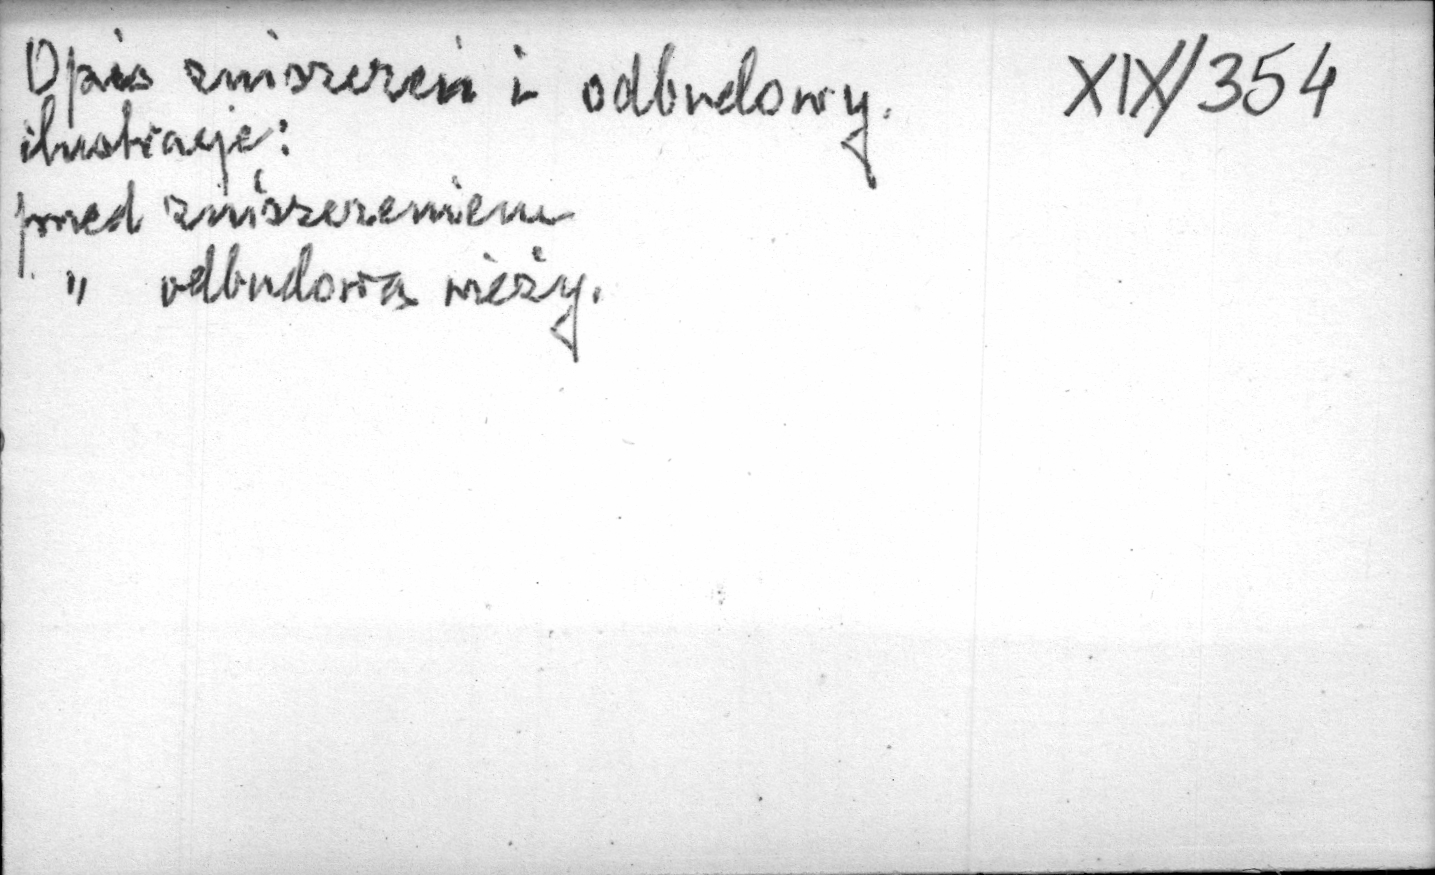 Opis zniszczeń i odbudowy. XIX/354
ilustracje:
przed zniszczeniem
" odbudową wieży.